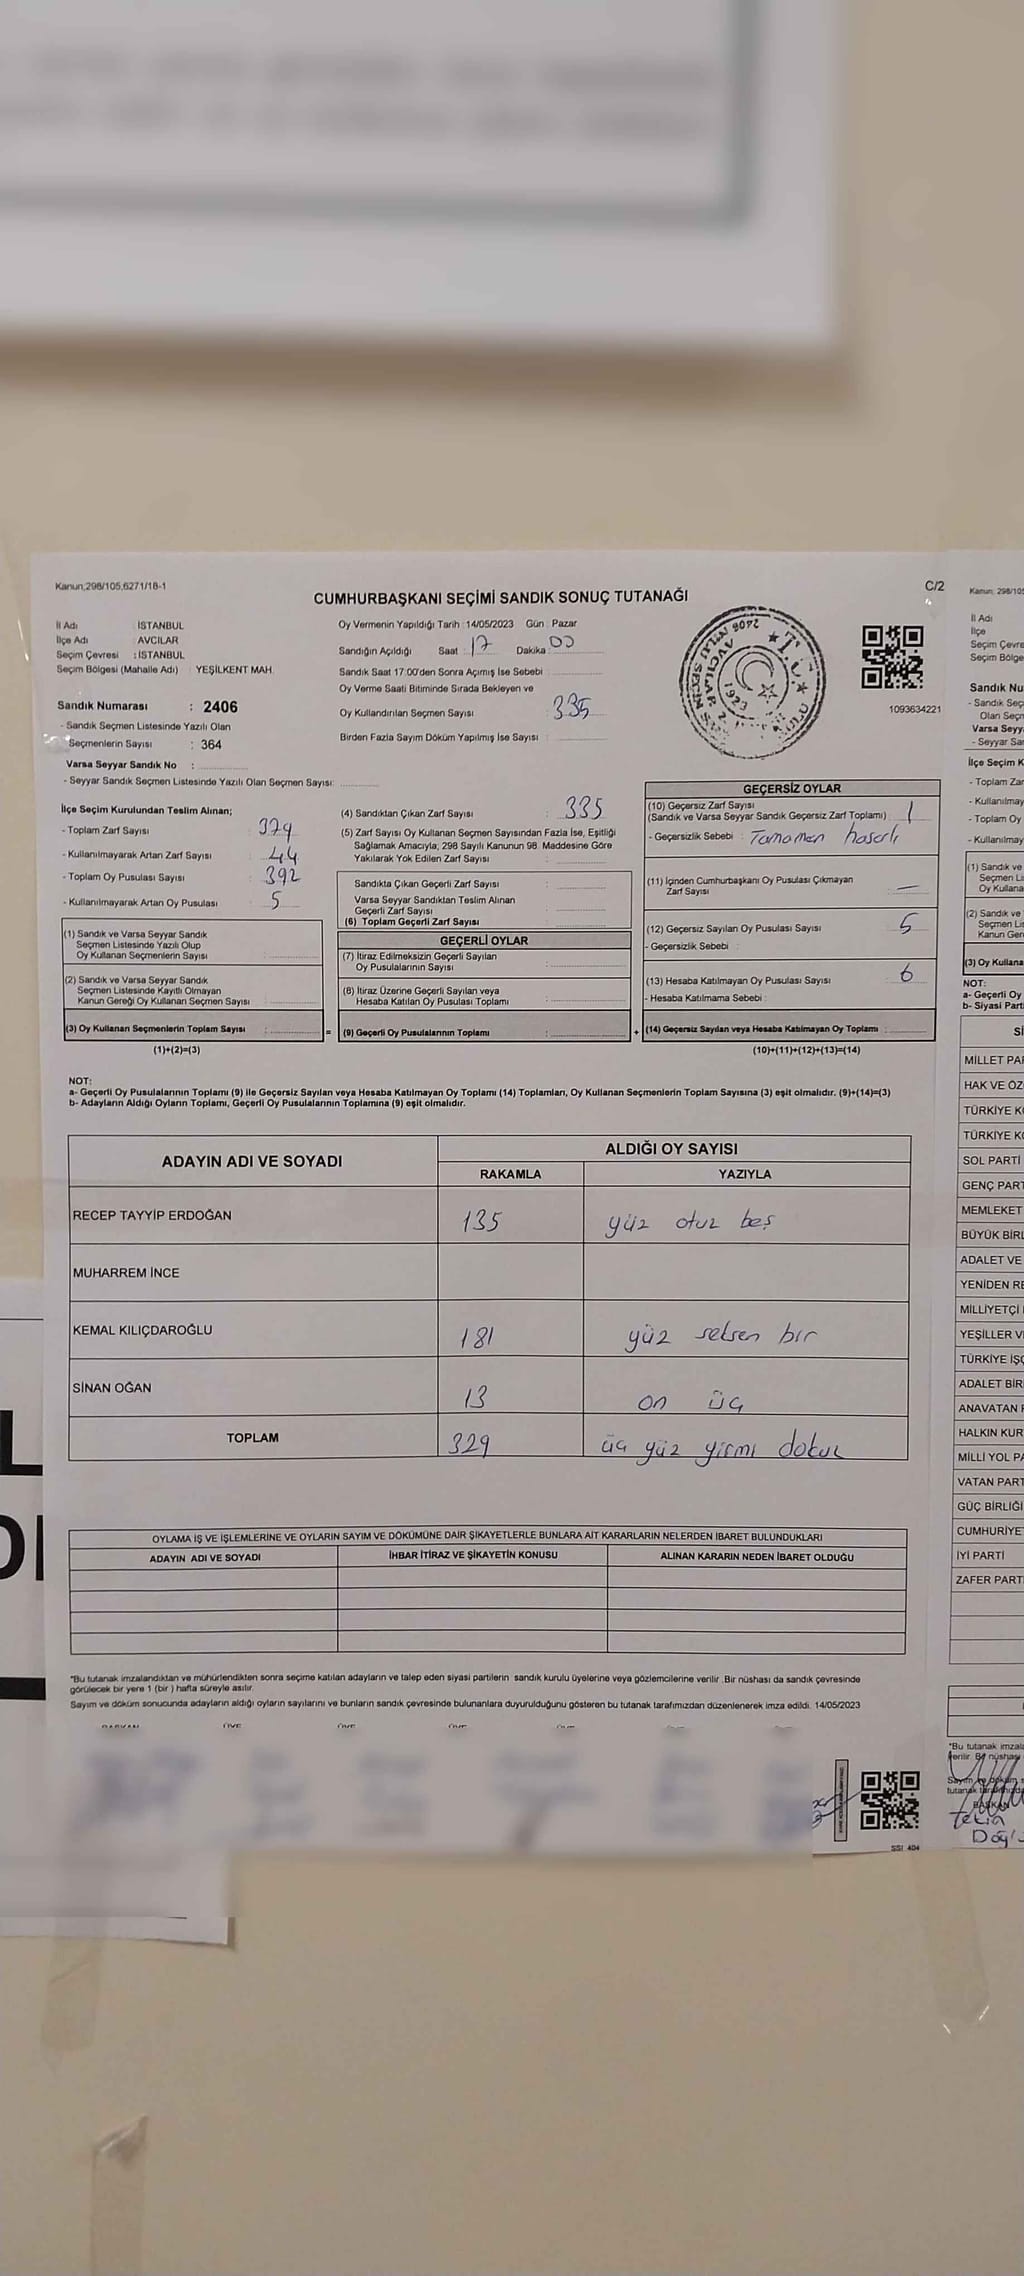 Kanun;298/105,6271/18-1
C/2
CUMHURBAŞKANI SEÇİMİ SANDIK SONUÇ TUTANAĞI
İl Adı : İSTANBUL
İlçe Adı : AVCILAR
Seçim Çevresi : İSTANBUL
Seçim Bölgesi (Mahalle Adı) : YEŞİLKENT MAH.
Sandık Numarası : 2406
- Sandık Seçmen Listesinde Yazılı Olan
Seçmenlerin Sayısı : 364
Varsa Seyyar Sandık No :
- Seyyar Sandık Seçmen Listesinde Yazılı Olan Seçmen Sayısı:
Oy Vermenin Yapıldığı Tarih : 14/05/2023 Gün : Pazar
Sandığın Açıldığı Saat : 17 Dakika : 00
Sandık Saat 17.00'den Sonra Açımış İse Sebebi :
Oy Verme Saati Bitiminde Sırada Bekleyen ve
Oy Kullandırılan Seçmen Sayısı : 335
Birden Fazla Sayım Döküm Yapılmış İse Sayısı :
T.C.
1923
1093634221
İlçe Seçim Kurulundan Teslim Alınan;
- Toplam Zarf Sayısı : 379
- Kullanılmayarak Artan Zarf Sayısı : 44
- Toplam Oy Pusulası Sayısı : 392
- Kullanılmayarak Artan Oy Pusulası : 5
(1) Sandık ve Varsa Seyyar Sandık
Seçmen Listesinde Yazılı Olup
Oy Kullanan Seçmenlerin Sayısı :
(2) Sandık ve Varsa Seyyar Sandık
Seçmen Listesinde Kayıtlı Olmayan
Kanun Gereği Oy Kullanan Seçmen Sayısı :
(3) Oy Kullanan Seçmenlerin Toplam Sayısı :
(1)+(2)=(3)
(4) Sandıktan Çıkan Zarf Sayısı : 335
(5) Zarf Sayısı Oy Kullanan Seçmen Sayısından Fazla İse, Eşitliği
Sağlamak Amacıyla, 298 Sayılı Kanunun 98. Maddesine Göre
Yakılarak Yok Edilen Zarf Sayısı :
Sandıkta Çıkan Geçerli Zarf Sayısı :
Varsa Seyyar Sandıktan Teslim Alınan
Geçerli Zarf Sayısı :
(6) Toplam Geçerli Zarf Sayısı :
GEÇERLİ OYLAR
(7) İtiraz Edilmeksizin Geçerli Sayılan
Oy Pusulalarının Sayısı :
(8) İtiraz Üzerine Geçerli Sayılan veya
Hesaba Katılan Oy Pusulası Toplamı :
=
(9) Geçerli Oy Pusulalarının Toplamı :
+
GEÇERSİZ OYLAR
(10) Geçersiz Zarf Sayısı
(Sandık ve Varsa Seyyar Sandık Geçersiz Zarf Toplamı) : 1
- Geçersizlik Sebebi : Tamamen hasarlı
(11) İçinden Cumhurbaşkanı Oy Pusulası Çıkmayan
Zarf Sayısı : —
(12) Geçersiz Sayılan Oy Pusulası Sayısı : 5
- Geçersizlik Sebebi :
(13) Hesaba Katılmayan Oy Sayısı : 6
- Hesaba Katılmama Sebebi :
(14) Geçersiz Sayılan veya Hesaba Katılmayan Oy Toplamı :
(10)+(11)+(12)+(13)=(14)
NOT:
a- Geçerli Oy Pusulalarının Toplamı (9) ile Geçersiz Sayılan veya Hesaba Katılmayan Oy Toplamı (14) Toplamları, Oy Kullanan Seçmenlerin Toplam Sayısına (3) eşit olmalıdır. (9)+(14)=(3)
b- Adayların Aldığı Oyların Toplamı, Geçerli Oy Pusulalarının Toplamına (9) eşit olmalıdır.
ADAYIN ADI VE SOYADI
ALDIĞI OY SAYISI
RAKAMLA YAZIYLA
RECEP TAYYİP ERDOĞAN 135 yüz otuz beş
MUHARREM İNCE
KEMAL KILIÇDAROĞLU 181 yüz seksen bir
SİNAN OĞAN 13 on üç
TOPLAM 329 üç yüz yirmi dokuz
OYLAMA İŞ VE İŞLEMLERİNE VE OYLARIN SAYIM VE DÖKÜMÜNE DAİR ŞİKAYETLERLE BUNLARA AİT KARARLARIN NELERDEN İBARET BULUNDUKLARI
ADAYIN ADI VE SOYADI İHBAR İTİRAZ VE ŞİKAYETİN KONUSU ALINAN KARARIN NEDEN İBARET OLDUĞU
"Bu tutanak imzalandıktan ve mühürlendikten sonra seçime katılan adayların ve talep eden siyasi partilerin sandık kurulu üyelerine veya gözlemcilerine verilir .Bir nüshası da sandık çevresinde
görülecek bir yere 1 (bir ) hafta süreyle asılır.
Sayım ve döküm sonucunda adayların aldığı oyların sayılarını ve bunların sandık çevresinde bulunanlara duyurulduğunu gösteren bu tutanak tarafımızdan düzenlenerek imza edildi. 14/05/2023
SSI 404
Kanun: 298/105
İl Adı
İlçe
Seçim Çevre
Seçim Bölge
Sandık Nu
- Sandık Seç
Olan Seçm
Varsa Seyy
- Seyyar Sa
İlçe Seçim K
- Toplam Zar
- Kullanılmay
- Toplam Oy
- Kullanılmay
(1) Sandık ve
Seçmen Lis
Oy Kullana
(2) Sandık ve
Seçmen Lis
Kanun Gere
(3) Oy Kullana
NOT:
a- Geçerli Oy
b- Siyasi Parti
Sİ
MİLLET PAR
HAK VE ÖZ
TÜRKİYE KO
TÜRKİYE KO
SOL PARTİ
GENÇ PART
MEMLEKET
BÜYÜK BİRL
ADALET VE
YENİDEN RE
MİLLİYETÇİ
YEŞİLLER VE
TÜRKİYE İŞÇ
ADALET BİR
ANAVATAN P
HALKIN KUR
MİLLİ YOL PA
VATAN PART
GÜÇ BİRLİĞİ
CUMHURİYE
İYİ PARTİ
ZAFER PARTİ
"Bu tutanak imzala
verilir. Bir nüshası
BAŞKAN
Tekin